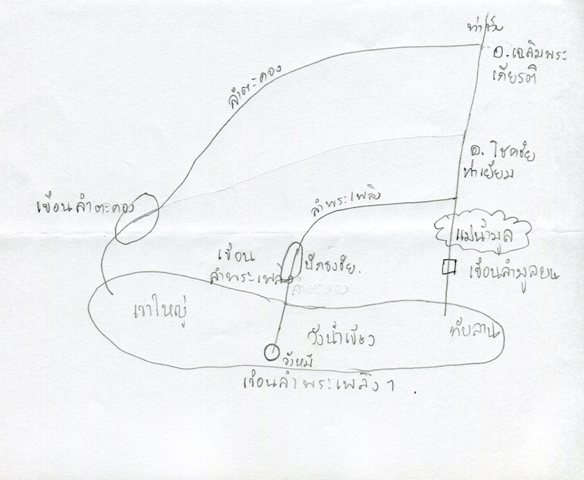 ท่าช้าง
อ.เฉลิมพระ
เกียรติ
ลำตะคอง
อ.โชคชัย
ท่าเยี่ยม
เขื่อนลำตะคอง
ลำพระเพลิง
แม่น้ำมูล
เขื่อน
ลำพระเพลิง
ปักธงชัย.
เขื่อนลำมูลบน
เขาใหญ่
วังน้ำเขียว
ทับลาน
เขื่อนลำพระเพลิง 1